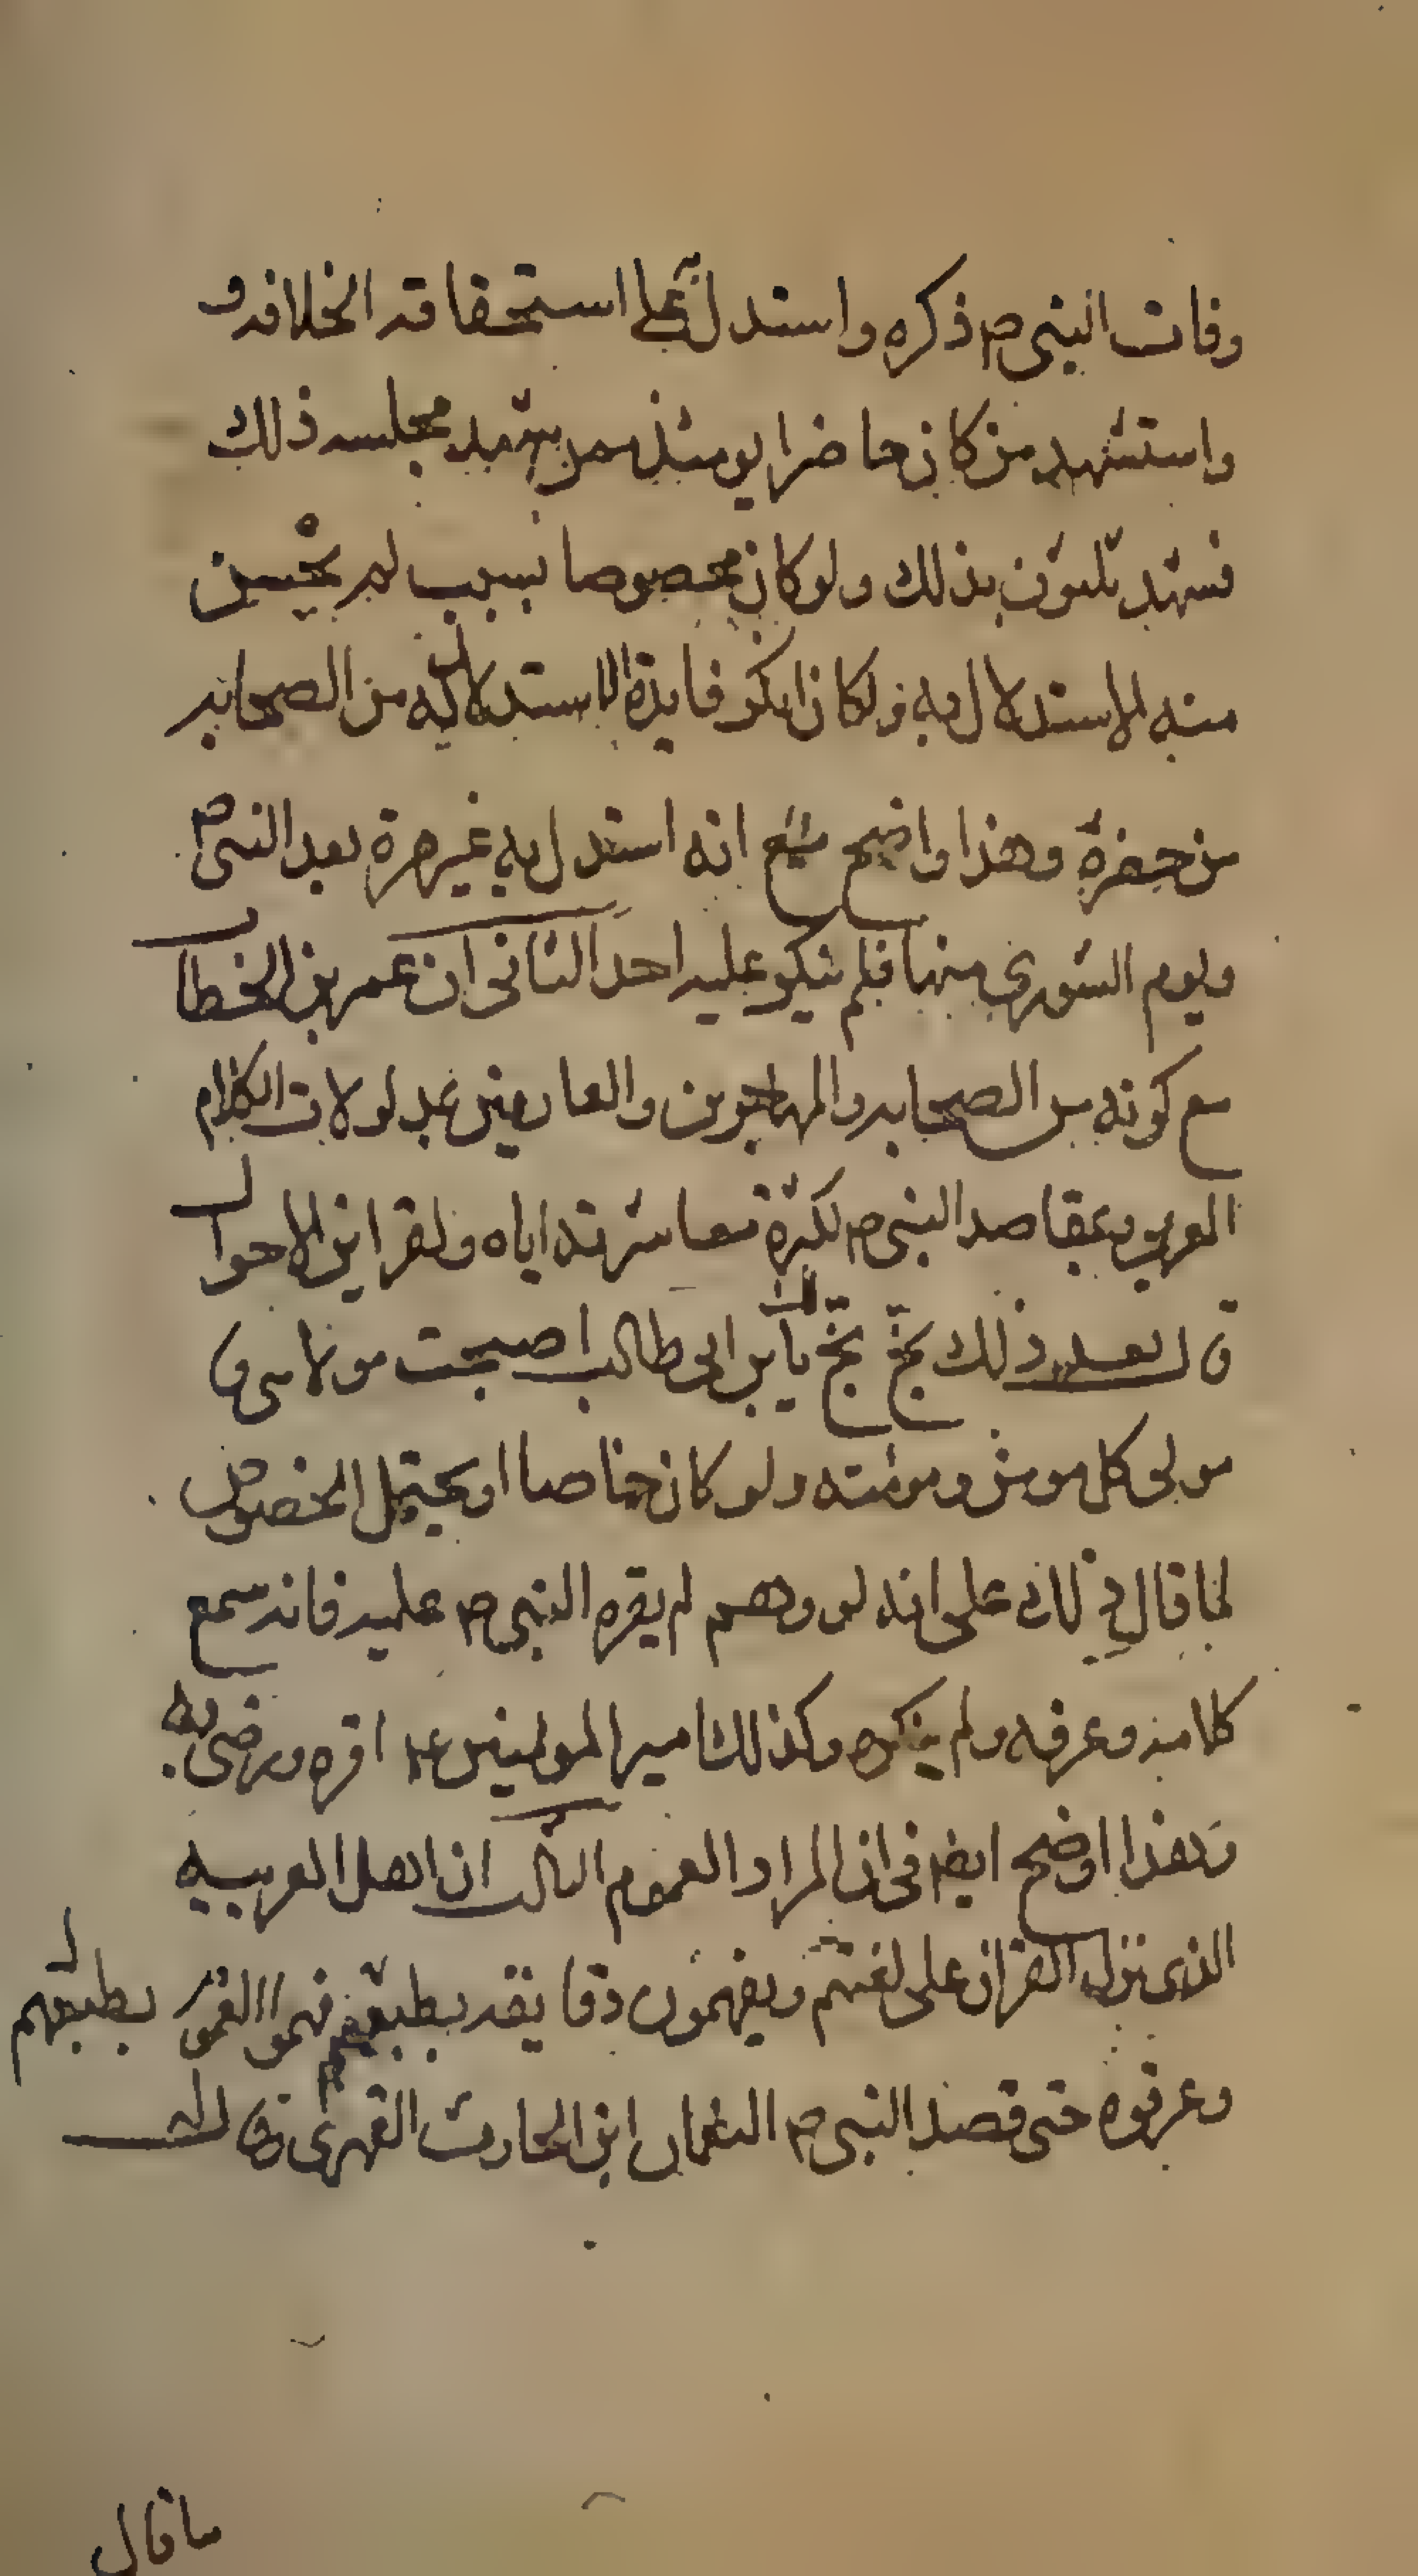 وفات النبي ص ذكره واستدل به على استحقاقه الخلافه و
واستشهد من كان حاضرا يومئذ ممن يشهد مجلسه ذلك
فشهد ثلثون بذلك ولو كان مخصوصا بسبب لم يحسن
منه الاستدلال به ولكان انكر فايدة الاستدلاليه من الصحابه
من حضره وهذا واضح مع انه استدل به غير مرة بعد النبي ص
ويوم الشورى منها فلم ينكر عليه احد الثاني ان عمر بن الخطاب
مع كونه من الصحابه والمهاجرين والعارفين بمدلولات الكلام
العربي وبمقاصد النبي ص لكثرة معاشرته اياه ولقراين الاحوال
قال بعد ذلك بخ بخ لك يا بن ابي طالب اصبحت مولاي و
مولى كل مومن ومومنه ولو كان خاصا او يحتمل الخصوص
لما قال ذلك على انه لو وهم لم يقره النبي ص عليه فانه سمع
كلامه وعرفه ولم ينكره وكذلك امير المومنين ع اقره ورضي به
وهذا اوضح ايضا في ان المراد العموم الثالث ان اهل العربيه
الذي نزل القران على لغتهم ويفهمون دقايقه بطبعهم فهموا العموم بطبعهم
وعرفوه حتى قصد النبي ص النعمان ابن الحارث الفهري وقال له
ما قال